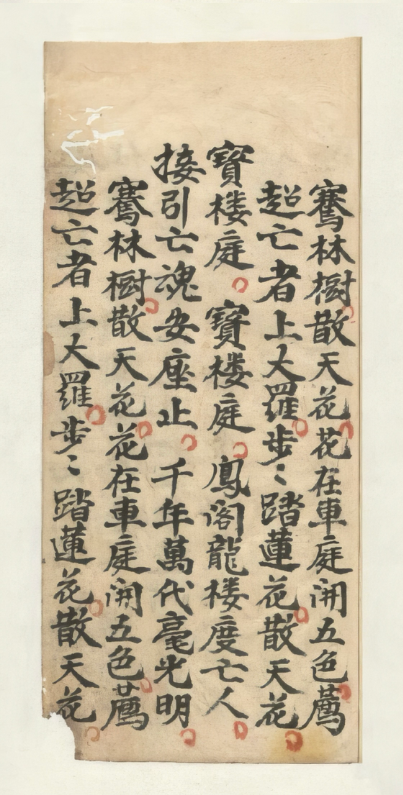 騫林樹散天花花在車庭開五色薦
超亡者上大羅步〻踏蓮花散天花
寳楼庭寳楼庭鳳阁龍楼度亡人
接引亡魂安座止千年萬代毫光明
騫林樹散天花花在車庭開五色薦
超亡者上大羅步〻踏蓮花散天花